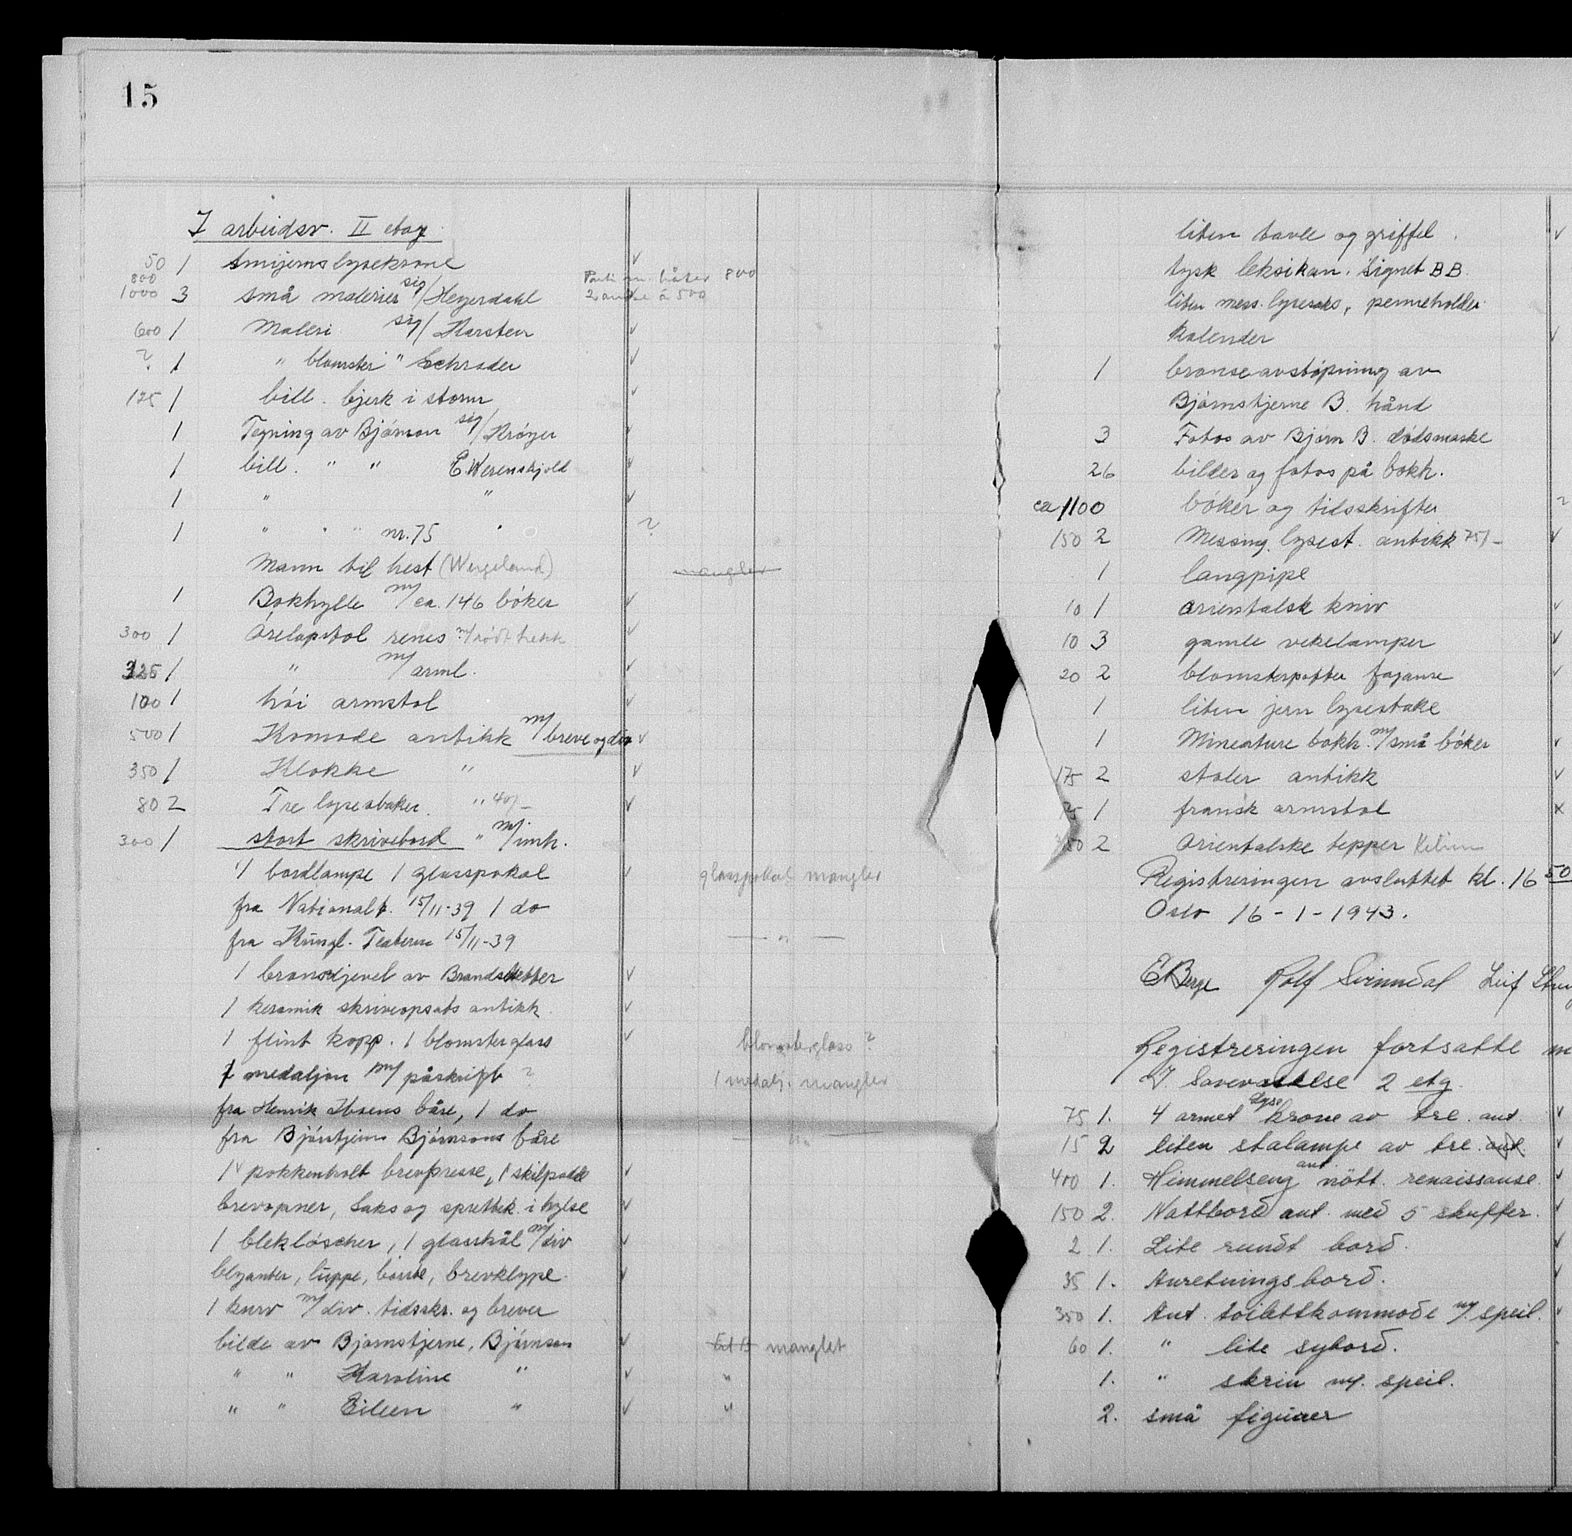 15
I arbeidsv. II etag.
50 1 Smijerns lysekrone ✓
800
1000 3 små malerier sig/Heyerdahl 800
2 andre á 500
600 1 Maleri sig/Karsten ✓
? 1 " blomster " Schrader ✓
125 1 bill. bjerk i storm ✓
1 Tegning av Bjørnson sig/Krøyer ✓
1 bill. " " E. Werenskjold ✓
1 " " ✓
1 " " " nr. 75 " ?
Mann til hest (Wergeland) mangler
1 Bokhylle m/ca. 146 bøker ✓
300 1 Ørelapstol renes. m/rødt trekk ✓
325 1 " m/arml. ✓
100 1 höi armstol ✓
500 1 Komode antikk m/breve og div ✓
350 1 Klokke " ✓
80 2 Tre lysestaker. " 40/- ✓
300 1 stort skrivebord " m/innh.
1 bordlampe 1 glasspokal ✓ glasspokal mangler
fra Nationalt. 15/11-39 1 do
fra Kungl. Teateren 15/11-39 — " —
1 bronsedjevel av Brandstetter ✓
1 keramik skriveopsats antikk. ✓
1 flint kopp. 1 blomsterglass ✓ blomsterglass ?
1 medaljon m/påskrift ? 1 medalj. mangler
fra Henrik Ibsens båre, 1 do
fra Bjørstjerns Bjørnsons båre — " —
1 pokkenholt brevpresse, 1 skilpadde ✓
brevopner, Saks og sprettek. i hylse ✓
1 bleklöscher, 1 glasskål m/div ✓
blyanter, luppe, börste, brevklype. ✓
1 kurv m/div. tidsskr. og brever
bilde av Bjørnstjerne, Bjørnson ✓ manglet
" " Karoline " ✓ "
" " Eileen " ✓ "
liten tavle og griffel. ✓
tysk leksikan. Signet BB.
liten mess. lysesaks, penneholder
Kalender ✓
1 bronseavstøpning av
Bjørnstjerne B. hånd
3 Fotos av Bjørn B. dødsmaske
26 bilder og fotos på bokh.
ca 1100 bøker og tidsskrifter ?
150 2 Messing. lysest. antikk 75/- ✓
1 langpipe
10 1 orientalsk kniv ✓
10 3 gamle vekelamper ✓
20 2 blomsterpotter fajanse ✓
1 liten jern lysestake
1 Mineature bokh. m/små bøker ✓
175 2 stoler antikk ✓
1 fransk armstol x
2 Orientalske tepper Kelim
Registreringen avsluttet kl. 16 50
Oslo 16-1-1943.
E Berge Rolf Svinndal Leif
Registreringen fortsatte
I Soveværelse 2 etg.
75 1. 4 armet lyse krone av tre. ant. ✓
15 2 liten stålampe av tre. ant. ✓
400 1. Himmelseng ant. nött. renaissanse. ✓
150 2. Nattbord ant. med 5 skuffer. ✓
2 1. Lite rundt bord. ✓
35 1. Anretningsbord. ✓
350 1. Ant. toilettkommode m/. speil. ✓
60 1. " lite sybord.
1. " skrin m/. speil.
2. små figurer